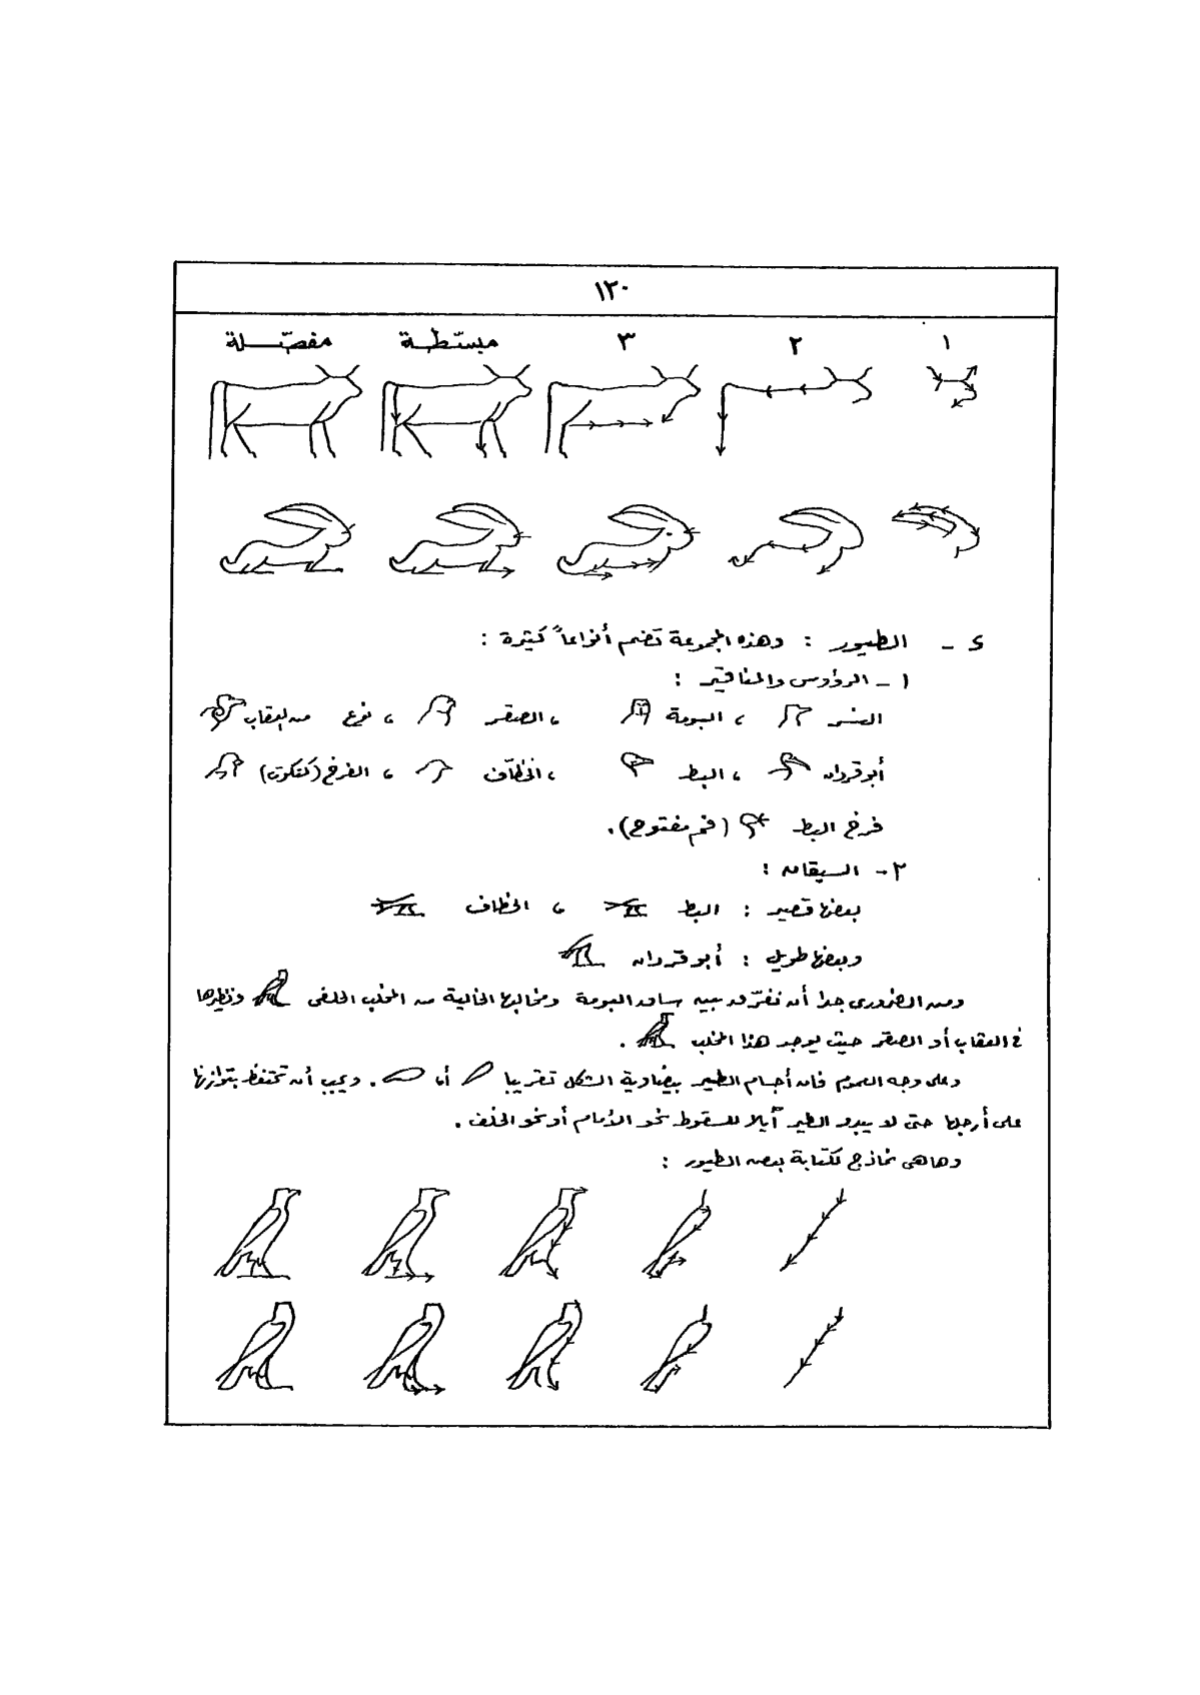 ١٢٠
١ ٢ ٣ مبسّطة مفصّلة
٤ - الطيور : وهذه المجموعة تضم أنواعاً كثيرة :
١ - الرؤوس والمناقير :
النسر ، البومة ، الصقر ، نوع من العقاب
أبو قردان ، البط ، الخطّاف ، الفرخ (كتكوت)
فرخ البط (فم مفتوح).
٢ - السيقان :
بعضها قصير : البط ، الخطاف
وبعضها طويل : أبو قردان
ومن الضرورى جدا أن نفرّق بين ساق البومة ومخالبها الخالية من المخلب الخلفى ونظيرها
فى العقاب أو الصقر حيث يوجد هذا المخلب .
وعلى وجه العموم فإن أجسام الطير بيضاوية الشكل تقريبا أما . ويجب أن تحتفظ بتوازنها
على أرجلها حتى لا يبدو الطير آيلا للسقوط نحو الأمام أو نحو الخلف .
وها هى نماذج لكتابة بعض الطيور :